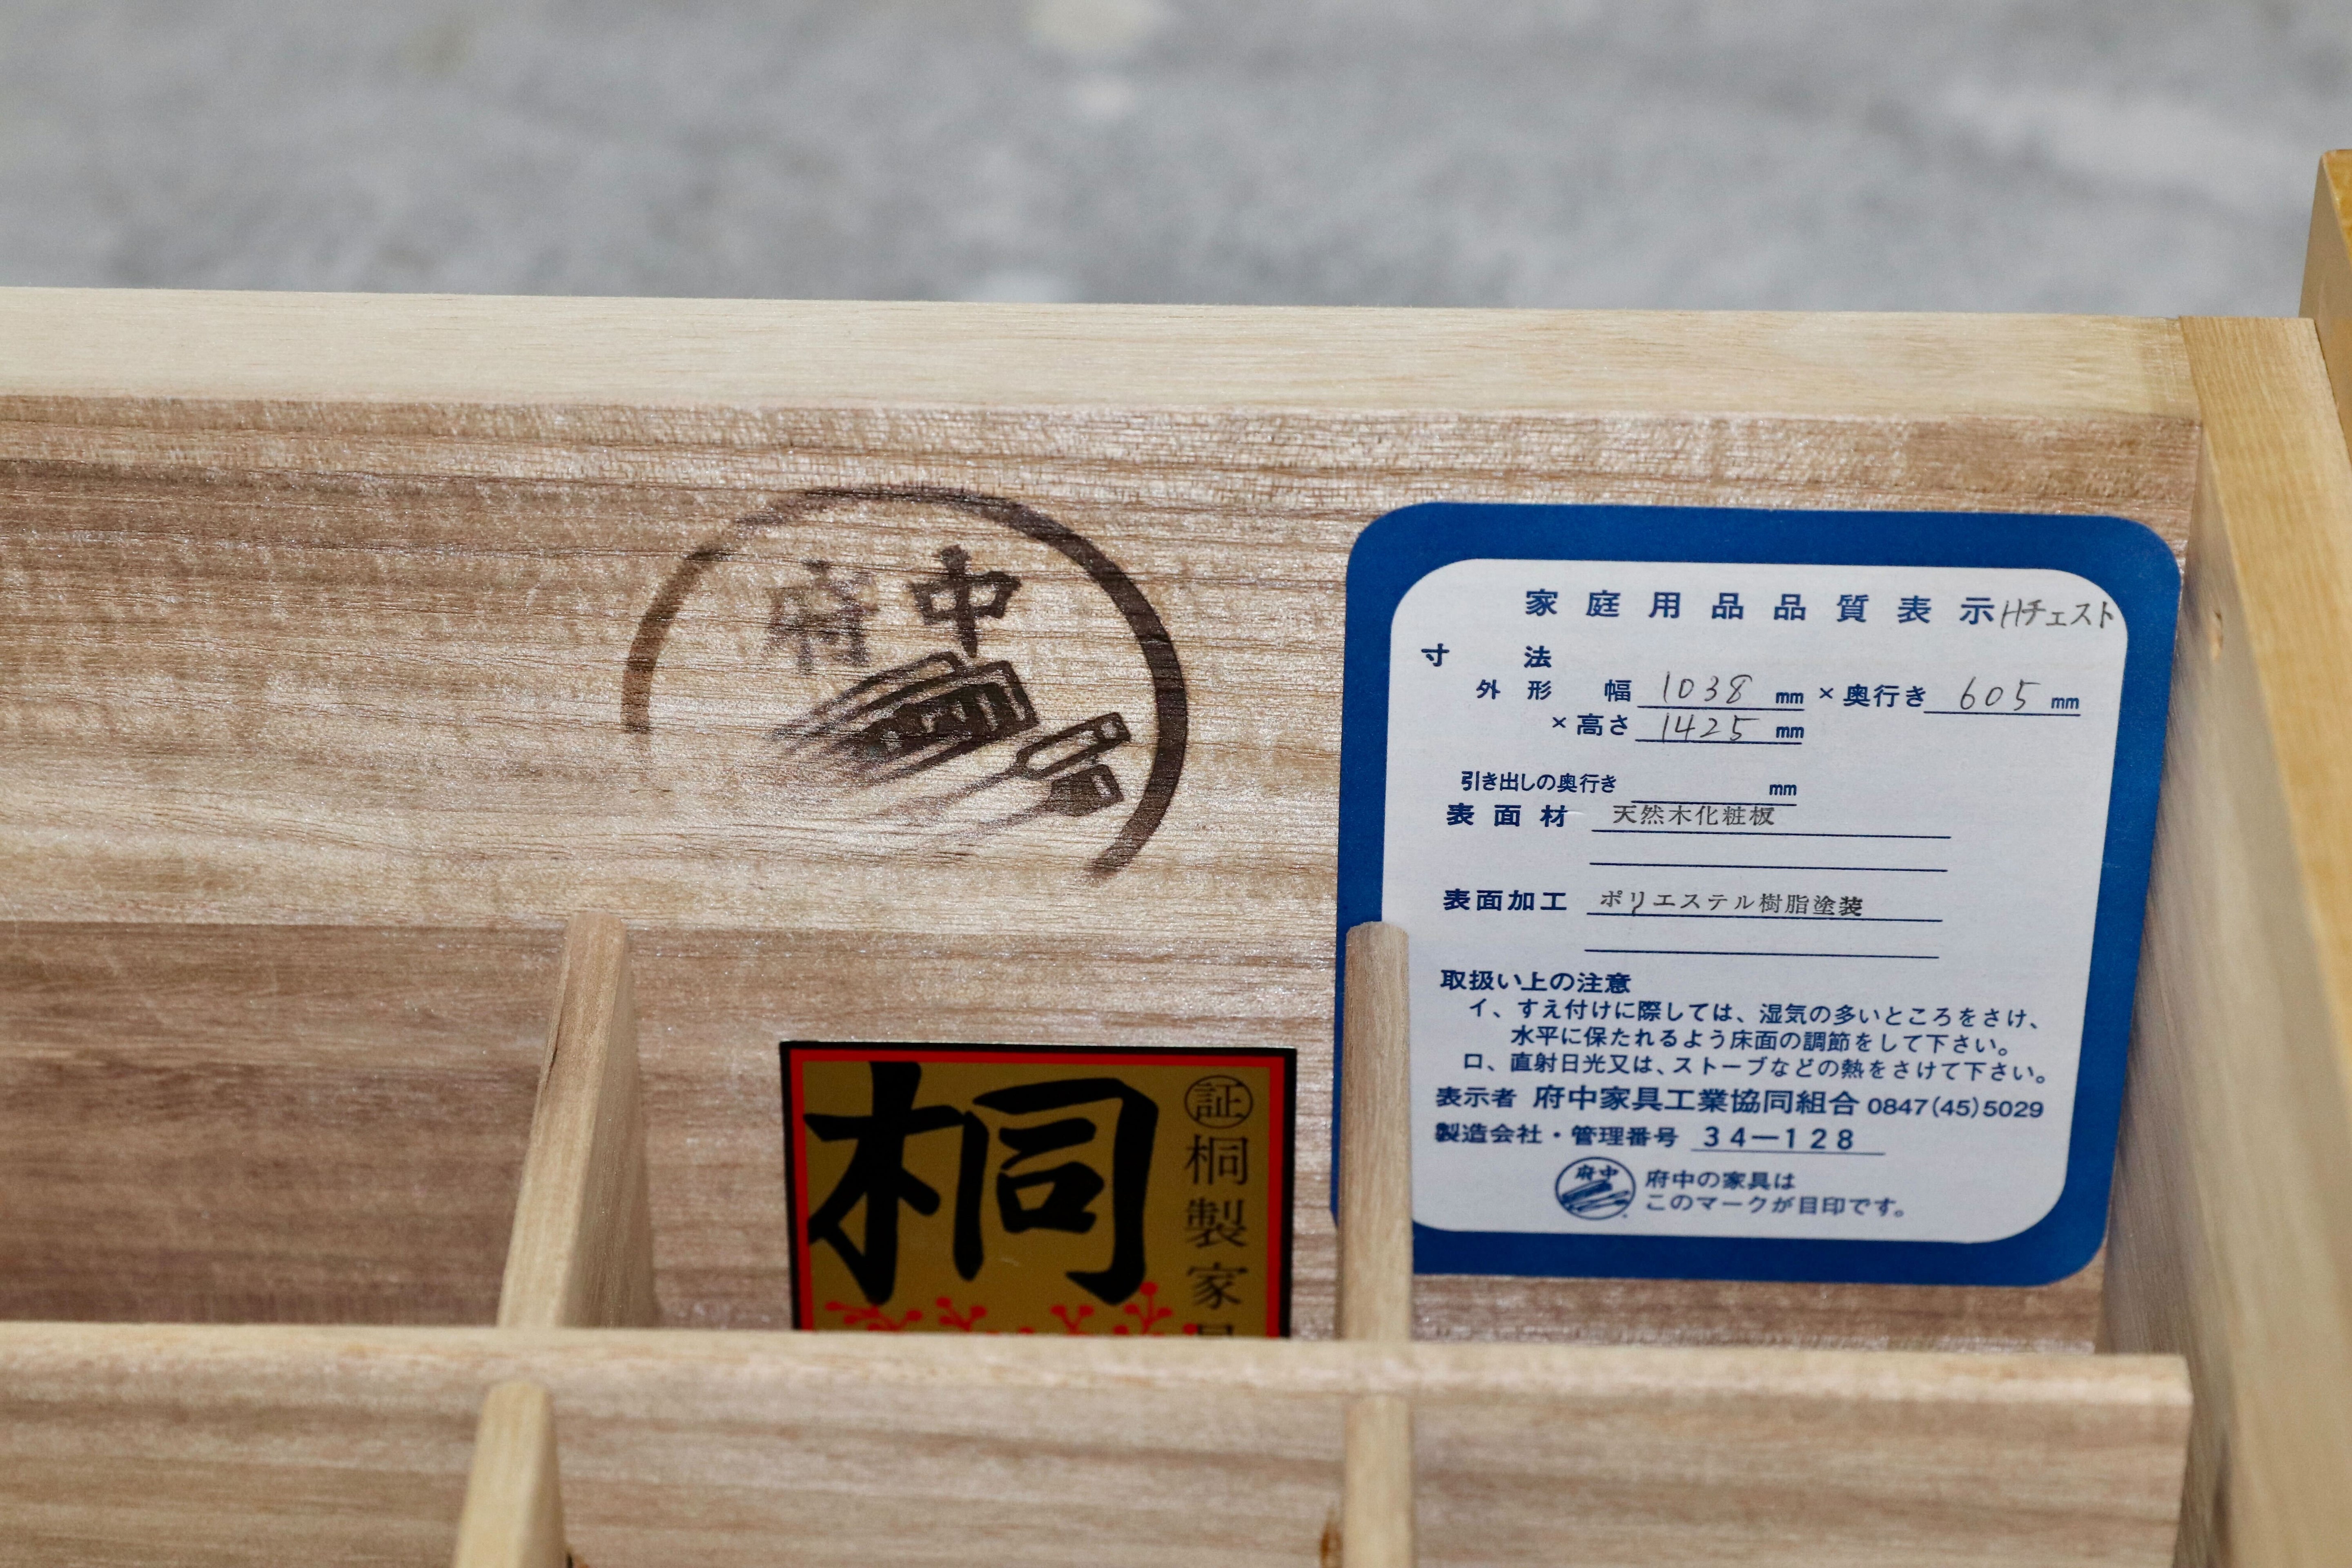 府中
家庭用品品質表示 Hチェスト
寸法
外形 幅 1038 mm × 奥行き 605 mm
× 高さ 1425 mm
引き出しの奥行き mm
表面材 天然木化粧板
表面加工 ポリエステル樹脂塗装
取扱い上の注意
イ、すえ付けに際しては、湿気の多いところをさけ、
水平に保たれるよう床面の調節をして下さい。
ロ、直射日光又は、ストーブなどの熱をさけて下さい。
表示者 府中家具工業協同組合 0847(45)5029
製造会社・管理番号 34-128
府中
府中の家具は
このマークが目印です。
桐
証
桐製家